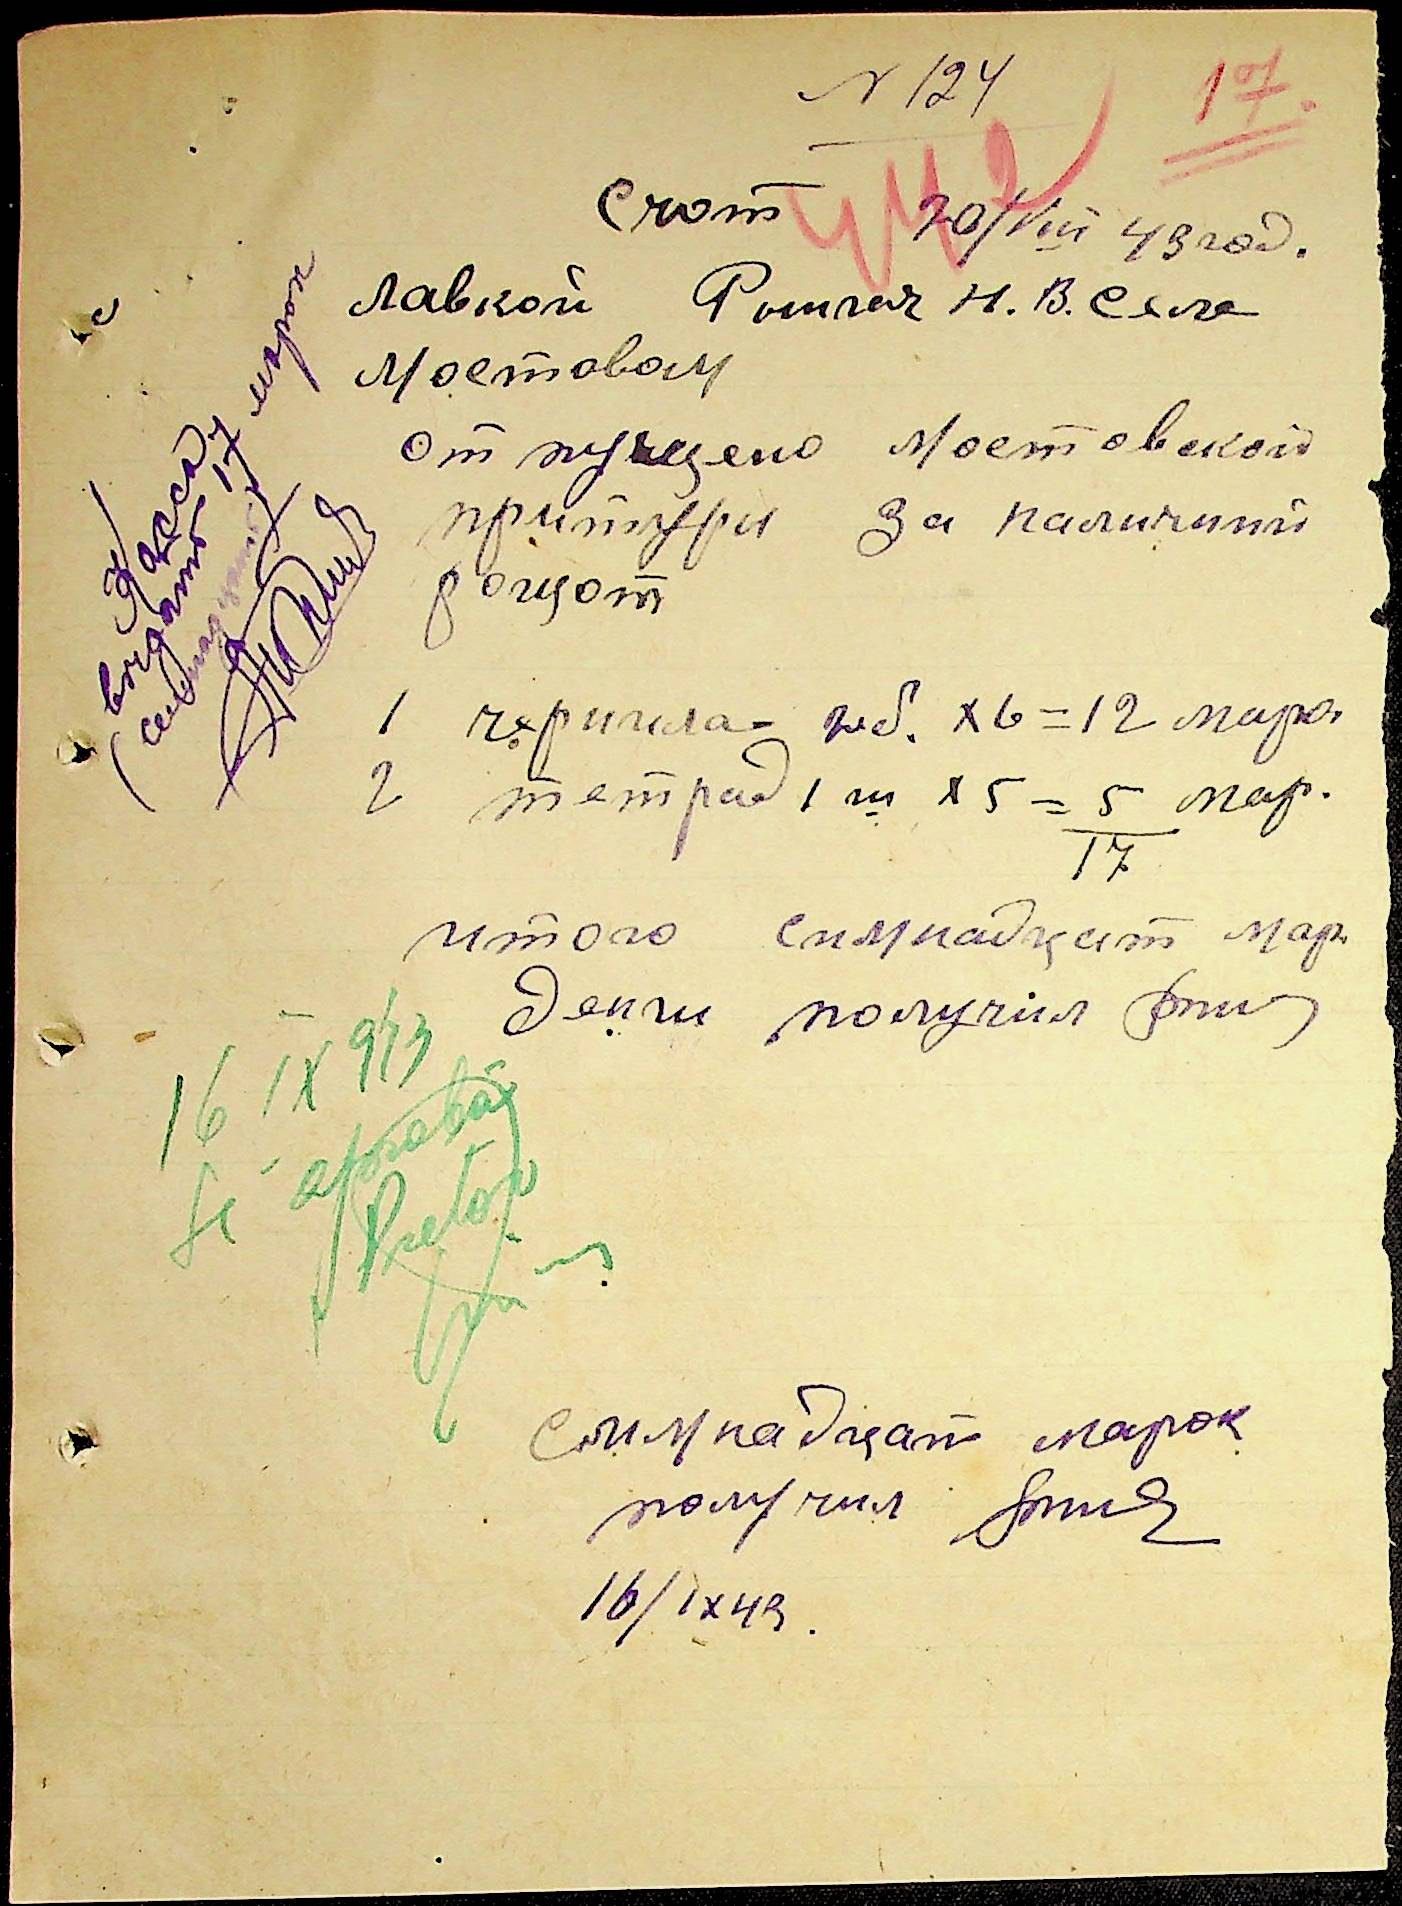 N 124
17.
Счот 20/VIII 43 год.
Лавкой Н. В. Села
Мостовом
отпущено Мостовской
притуры за наличний
рощот
1 чернила 2 б. х 6 = 12 марк.
2 тетрад 1 ш х 5 = 5 мар.
17
итого симнадцат мар.
Денги получил
Кассе
выдать 17 марок
(семнадцать)
16 IX 943
Se aprobă
Pretor
Симнадцат марок
получил
16/IX 43.